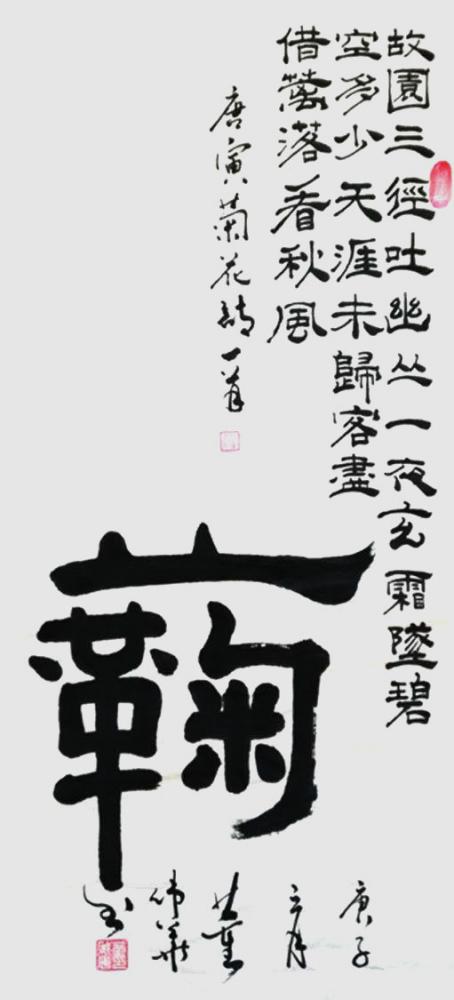 故園三徑吐幽丛一夜玄霜墜碧
空多少天涯未歸客盡
借蓠落看秋風
唐寅菊花詩一首
蘜
庚子
三月
书